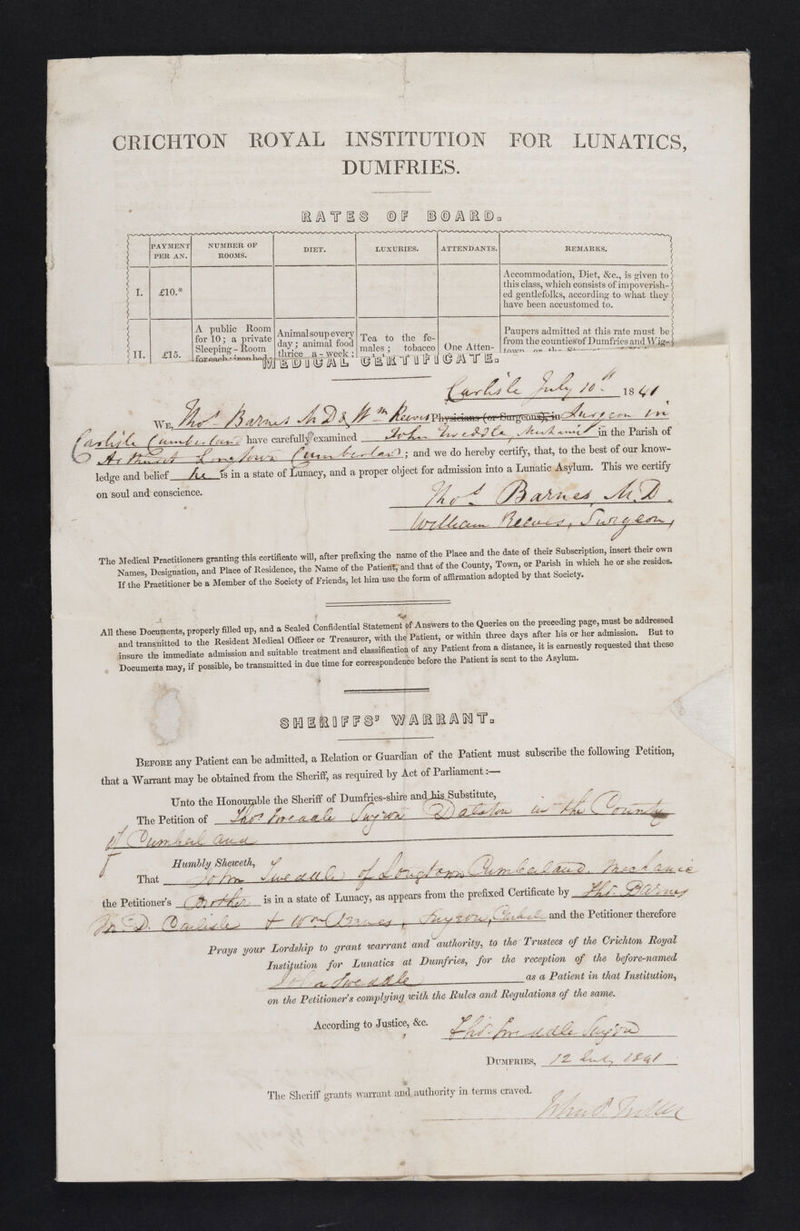 CRICHTON ROYAL INSTITUTION FOR LUNATICS,
DUMFRIES.
RATES OF BOARD.
PAYMENT PER AN.
NUMBER OF ROOMS.
DIET.
LUXURIES.
ATTENDANTS.
REMARKS.
I.
£10.*
Accommodation, Diet, &c., is given to
this class, which consists of impoverish-
ed gentlefolks, according to what they
have been accustomed to.
II.
£15.
A public Room
for 10; a private
Sleeping-Room
for each; iron bed
Animal soup every
day; animal food
thrice a-week;
Tea to the fe-
males; tobacco
One Atten-
Paupers admitted at this rate must be
from the counties of Dumfries and Wig-
MEDICAL CERTIFICATE.
Carlisle July 10th 1841
WE, Thos Barnes M D & Wm Reeves Physicians (or Surgeons), in Surgeon in
Carlisle Cumberland have carefully examined John Tweddle, Mechanic in the Parish of
Arthuret Longtown Cumberland; and we do hereby certify, that, to the best of our know-
ledge and belief he is in a state of Lunacy, and a proper object for admission into a Lunatic Asylum. This we certify
on soul and conscience.
Thos Barnes, M.D.
William Reeves, Surgeon,
The Medical Practitioners granting this certificate will, after prefixing the name of the Place and the date of their Subscription, insert their own
Names, Designation, and Place of Residence, the Name of the Patient, and that of the County, Town, or Parish in which he or she resides.
If the Practitioner be a Member of the Society of Friends, let him use the form of affirmation adopted by that Society.
All these Documents, properly filled up, and a Sealed Confidential Statement of Answers to the Queries on the preceding page, must be addressed
and transmitted to the Resident Medical Officer or Treasurer, with the Patient, or within three days after his or her admission. But to
insure the immediate admission and suitable treatment and classification of any Patient from a distance, it is earnestly requested that these
Documents may, if possible, be transmitted in due time for correspondence before the Patient is sent to the Asylum.
SHERIFFS' WARRANT.
BEFORE any Patient can be admitted, a Relation or Guardian of the Patient must subscribe the following Petition,
that a Warrant may be obtained from the Sheriff, as required by Act of Parliament:—
Unto the Honourable the Sheriff of Dumfries-shire and his Substitute,
The Petition of Thos Tweddle Surgeon Dalston in the County
of Cumberland
Humbly Sheweth,
That John Tweddle of Longtown Cumberland. Mechanic
the Petitioner's Brother is in a state of Lunacy, as appears from the prefixed Certificate by Thos Barnes
M.D. Carlisle & Wm Surgeon, Carlisle and the Petitioner therefore
Prays your Lordship to grant warrant and authority, to the Trustees of the Crichton Royal
Institution for Lunatics at Dumfries, for the reception of the before-named
John Tweddle as a Patient in that Institution,
on the Petitioner's complying with the Rules and Regulations of the same.
According to Justice, &c. Thos Tweddle Surgeon
DUMFRIES, 12 July 1841
The Sheriff grants warrant and authority in terms craved.
John